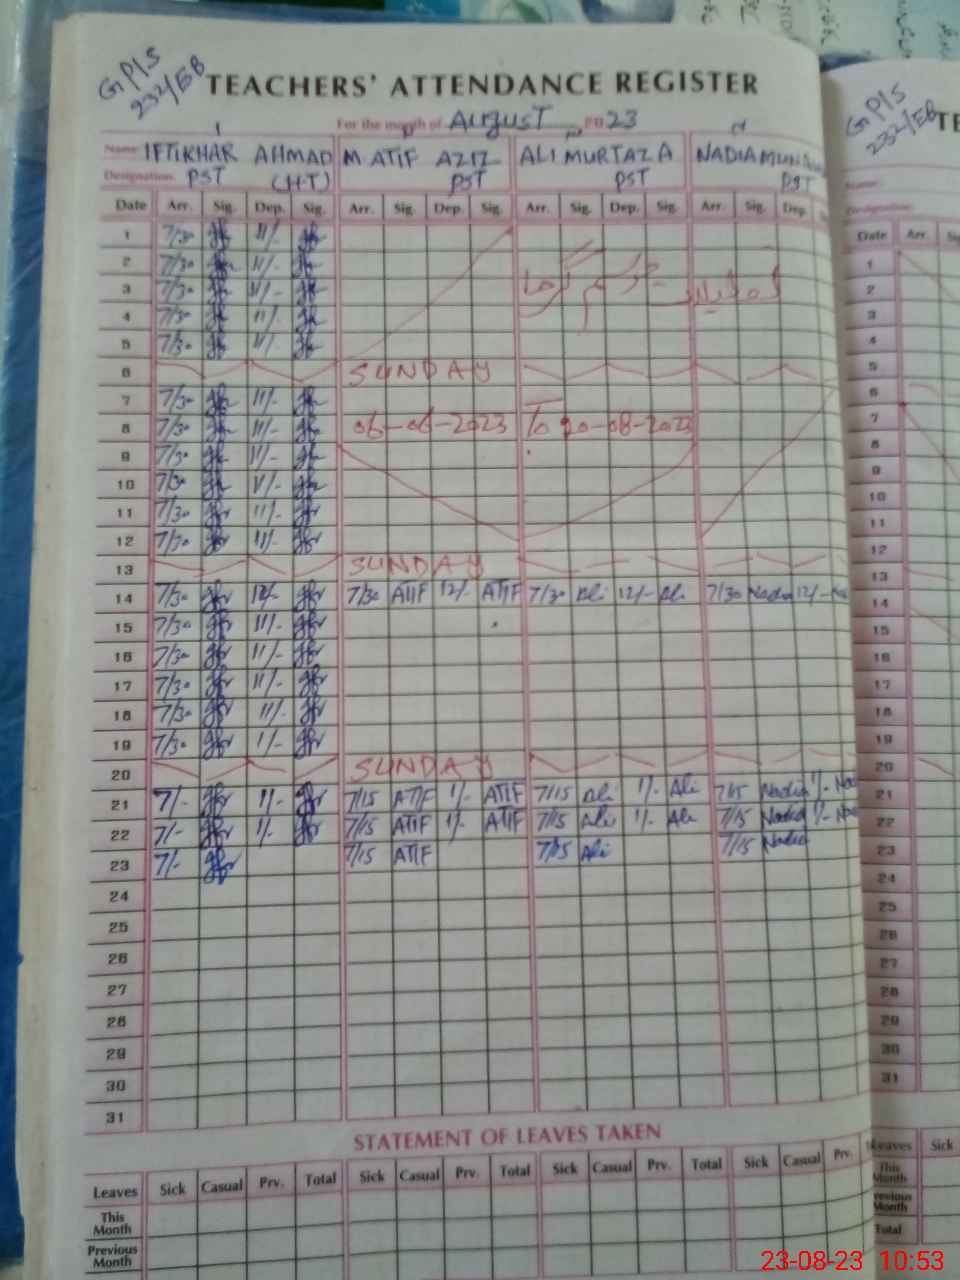 GP/S
232/EB
TEACHERS' ATTENDANCE REGISTER
For the month of AUGUST 2023
Name IFTIKHAR AHMAD M ATIF AZIZ ALI MURTAZA NADIA
Designation PST (H.T) PST PST PST
Date Arr. Sig. Dep. Sig. Arr. Sig. Dep. Sig. Arr. Sig. Dep. Sig. Arr. Sig. Dep.
1 7/30 11/-
2 7/30 11/-
3 7/30 11/-
موسم گرما
تعطیلات
4 7/30 11/-
5 7/30 11/-
6 SUNDAY
7 7/30 11/-
8 7/30 11/- 06-06-2023 To 20-08-2023
9 7/30 11/-
10 7/30 11/-
11 7/30 11/-
12 7/30 11/-
13 SUNDAY
14 7/30 12/- 7/30 ATIF 12/- ATIF 7/30 Ali 12/- Ali 7/30 Nadia 12/-
15 7/30 11/-
16 7/30 11/-
17 7/30 11/-
18 7/30 11/-
19 7/30 1/-
20 SUNDAY
21 7/- 1/- 7/15 ATIF 1/- ATIF 7/15 Ali 1/- Ali 7/15 Nadia 1/-
22 7/- 1/- 7/15 ATIF 1/- ATIF 7/15 Ali 1/- Ali 7/15 Nadia 1/-
23 7/- 7/15 ATIF 7/15 Ali 7/15 Nadia
24
25
26
27
28
29
30
31
STATEMENT OF LEAVES TAKEN
Leaves Sick Casual Prv. Total Sick Casual Prv. Total Sick Casual Prv. Total Sick Casual Prv.
This Month
Previous Month
GP/S
232/EB
TE
Name
Designation
Date Arr.
1
2
3
4
5
6
7
8
9
10
11
12
13
14
15
16
17
18
19
20
21
22
23
24
25
26
27
28
29
30
31
Leaves Sick
This Month
Previous Month
Total
23-08-23 10:53